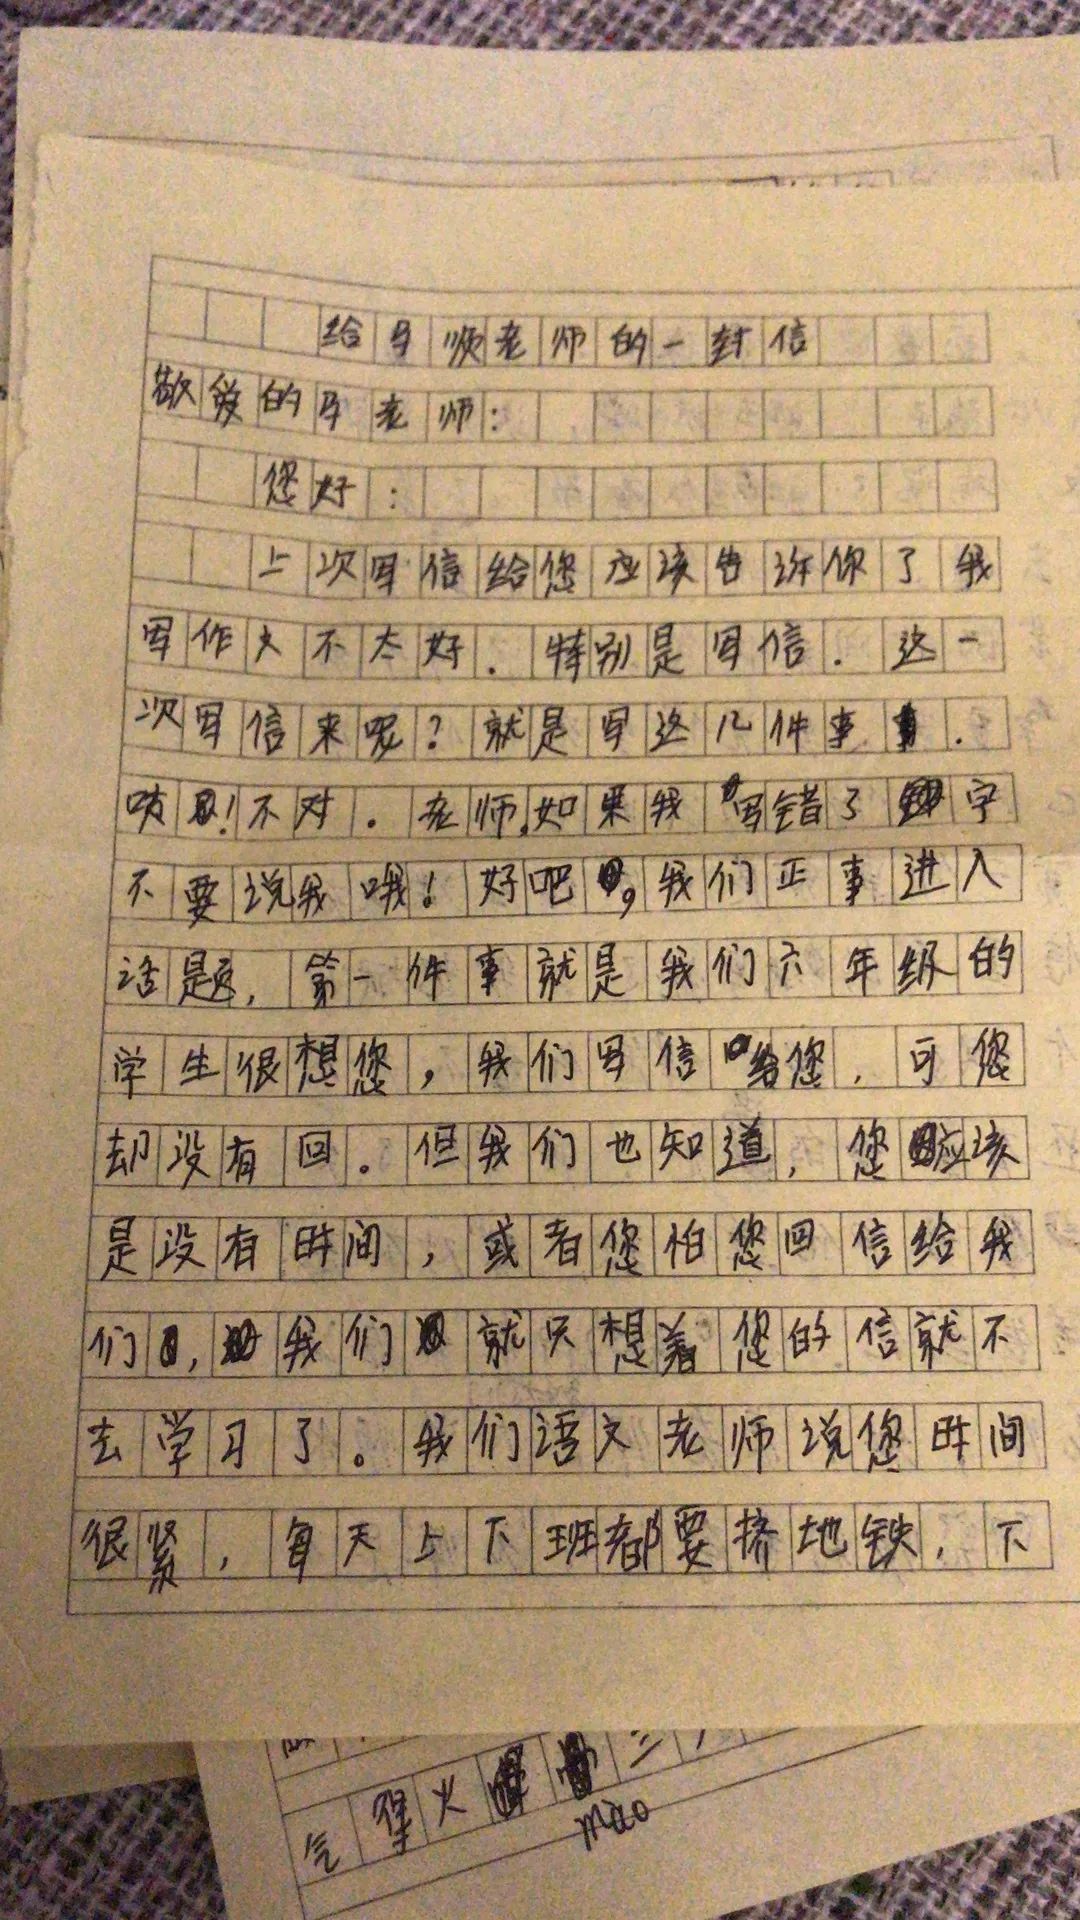 给马顺老师的一封信
敬爱的马老师：
您好：
上次写信给您应该告诉你了我
写作文不太好．特别是写信．这一
次写信来呢？就是写这几件事．
！不对．老师,如果我写错了字
不要说我哦！好吧，我们正事进入
话题，第一件事就是我们六年级的
学生很想您，我们写信给您，可您
却没有回。但我们也知道，您应该
是没有时间，或者您怕您回信给我
们，我们就只想着您的信就不
去学习了。我们语文老师说您时间
很紧，每天上下班都要挤地铁，下
气堡火
mao